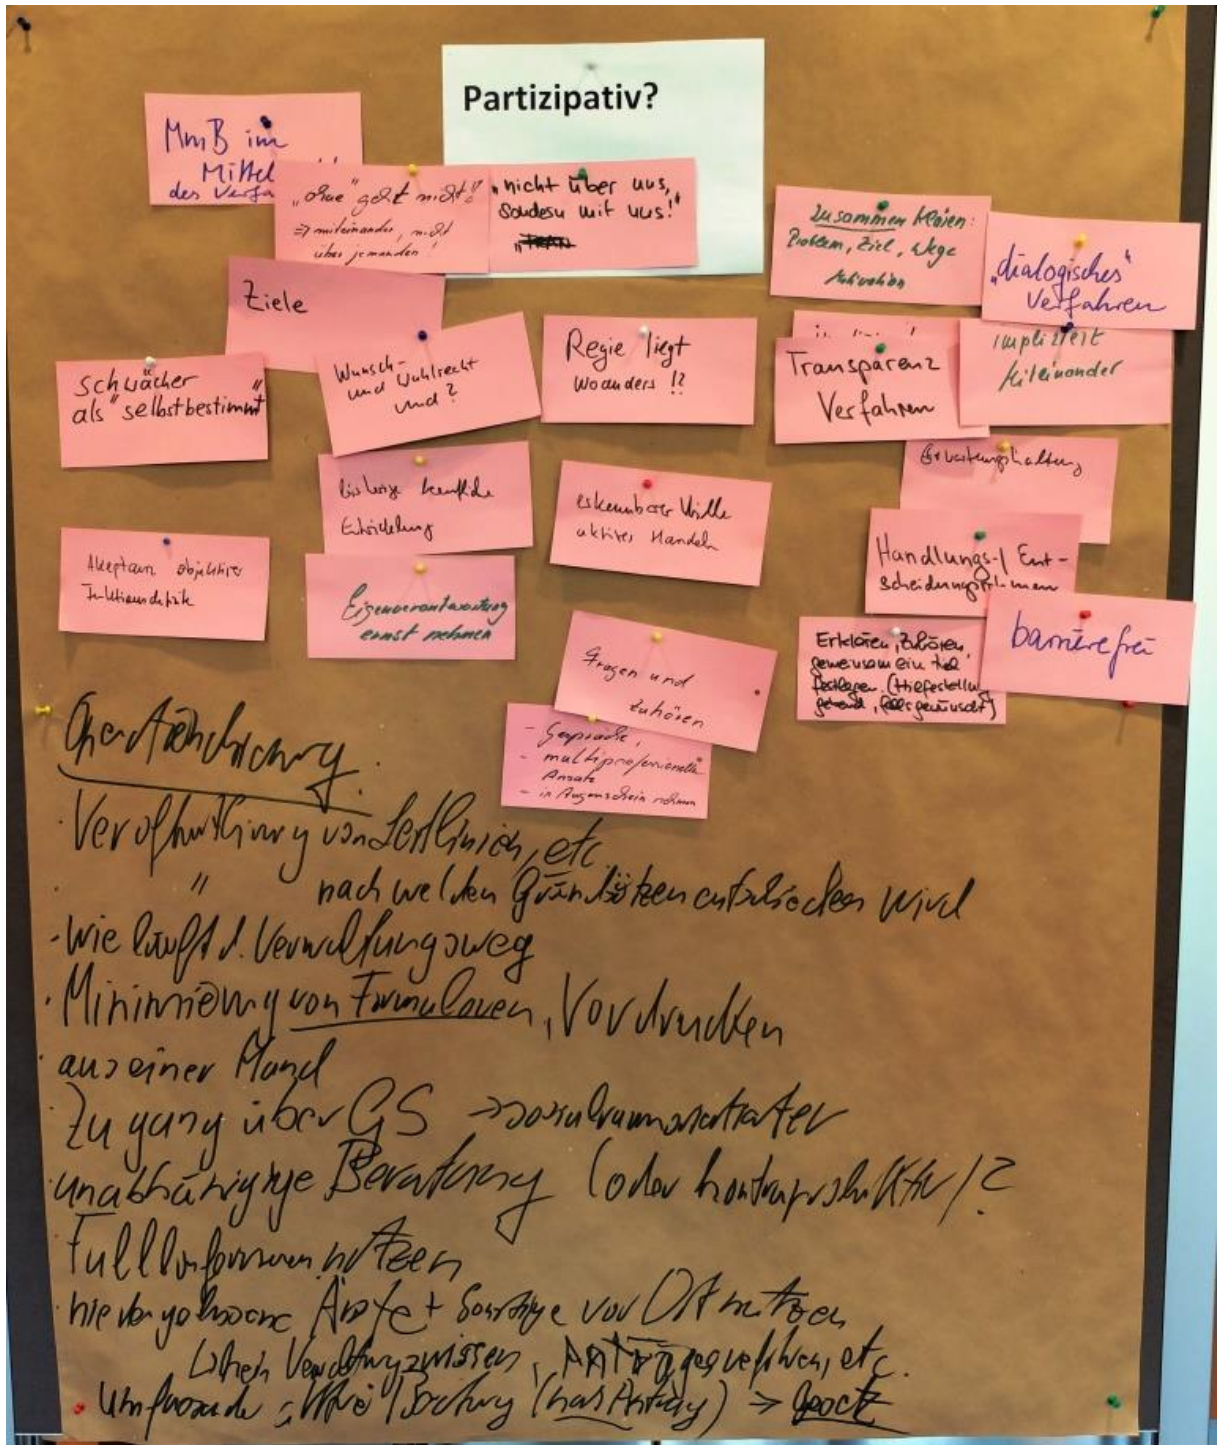 Partizipativ?
MmB im
Mittel
des Verfa
"ohne" geht nicht!!
=> miteinander, nicht
über jemanden!
"nicht über uns,
sondern mit uns!"
Zusammen klären:
Problem, Ziel, Wege
Motivation
"dialogisches"
Verfahren
Ziele
Wunsch-
und Wahlrecht
und?
Regie liegt
woanders!?
Transparenz
Verfahren
impliziert
Miteinander
schwächer
als "selbstbestimmt"
bisherige berufliche
Entwicklung
erkennbarer Wille
aktives Handeln
Erwartungshaltung
Akzeptanz objektiver
Handlungs-/ Ent-
scheidungsrahmen
Eigenverantwortung
ernst nehmen
Fragen und
zuhören
Erklären, Zuhören,
gemeinsam ein Ziel
festlegen. (Hilfestellung
gebend, falls gewünscht)
barrierefrei
- Gespräche,
- multiprofessioneller
Ansatz
- in Augenschein nehmen
von Leitlinien, etc
" nach welchen Grundsätzen entschieden wird
- Wie läuft d. Verwaltungsweg
· Minimierung von Formularen, Vordrucken
· aus einer Hand
· Zugang über GS -> sozialraumorientierter
· unabhängige Beratung (oder kontraproduktiv)?
nutzen
· niedergelassene Ärzte + Sonstige vor Ort nutzen
kein Verwaltungswissen, Antragsverfahren, etc.
· Umfassende (nach Antrag) ->